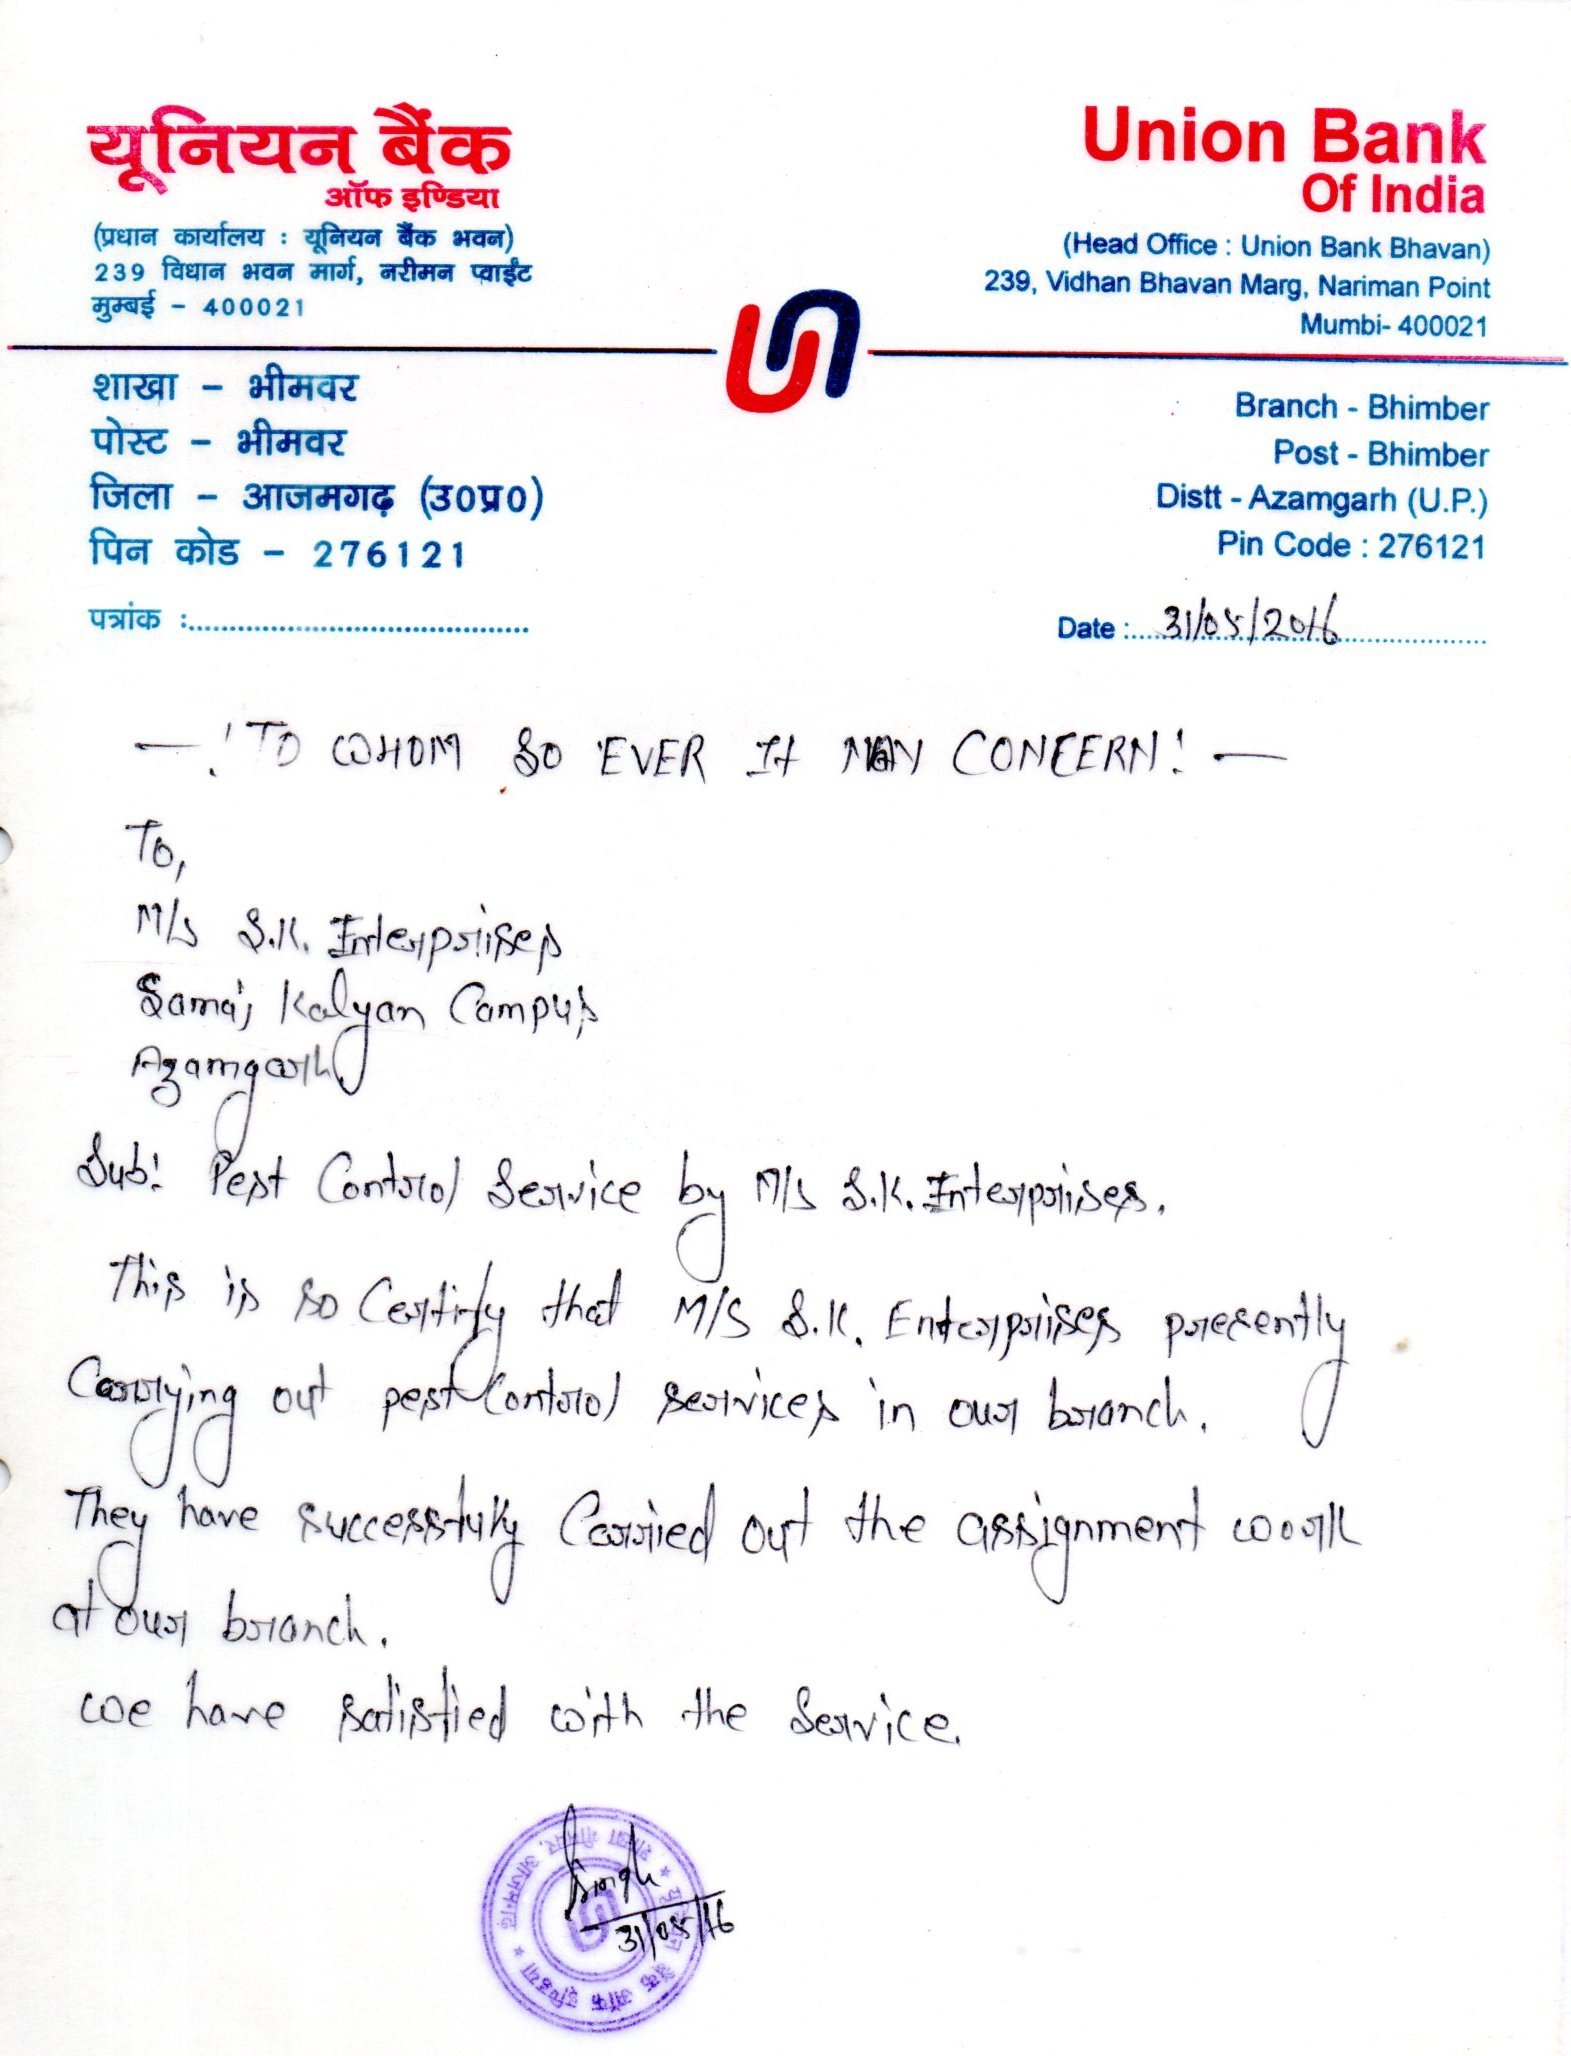 यूनियन बैंक
ऑफ इण्डिया
(प्रधान कार्यालय : यूनियन बैंक भवन)
239 विधान भवन मार्ग, नरीमन प्वाईंट
मुम्बई - 400021
Union Bank
Of India
(Head Office : Union Bank Bhavan)
239, Vidhan Bhavan Marg, Nariman Point
Mumbi- 400021
शाखा - भीमवर
पोस्ट - भीमवर
जिला - आजमगढ़ (उ0प्र0)
पिन कोड - 276121
पत्रांक :
Branch - Bhimber
Post - Bhimber
Distt - Azamgarh (U.P.)
Pin Code : 276121
Date : 31/05/2016
—! TO WHOM SO EVER It MAY CONCERN! —
To,
M/s S.K. Enterprises
Samaj Kalyan Campus
Azamgarh
Sub: Pest Control Service by M/s S.K. Enterprises.
This is so Certify that M/S S.K. Enterprises presently
Carrying out pest Control services in our branch.
They have successfuly Carried out the assignment work
at our branch.
we have satisfied with the Service.
Singh
31/05/16
यूनियन बैंक ऑफ इण्डिया * शाखा भीमवर, आजमगढ़ *